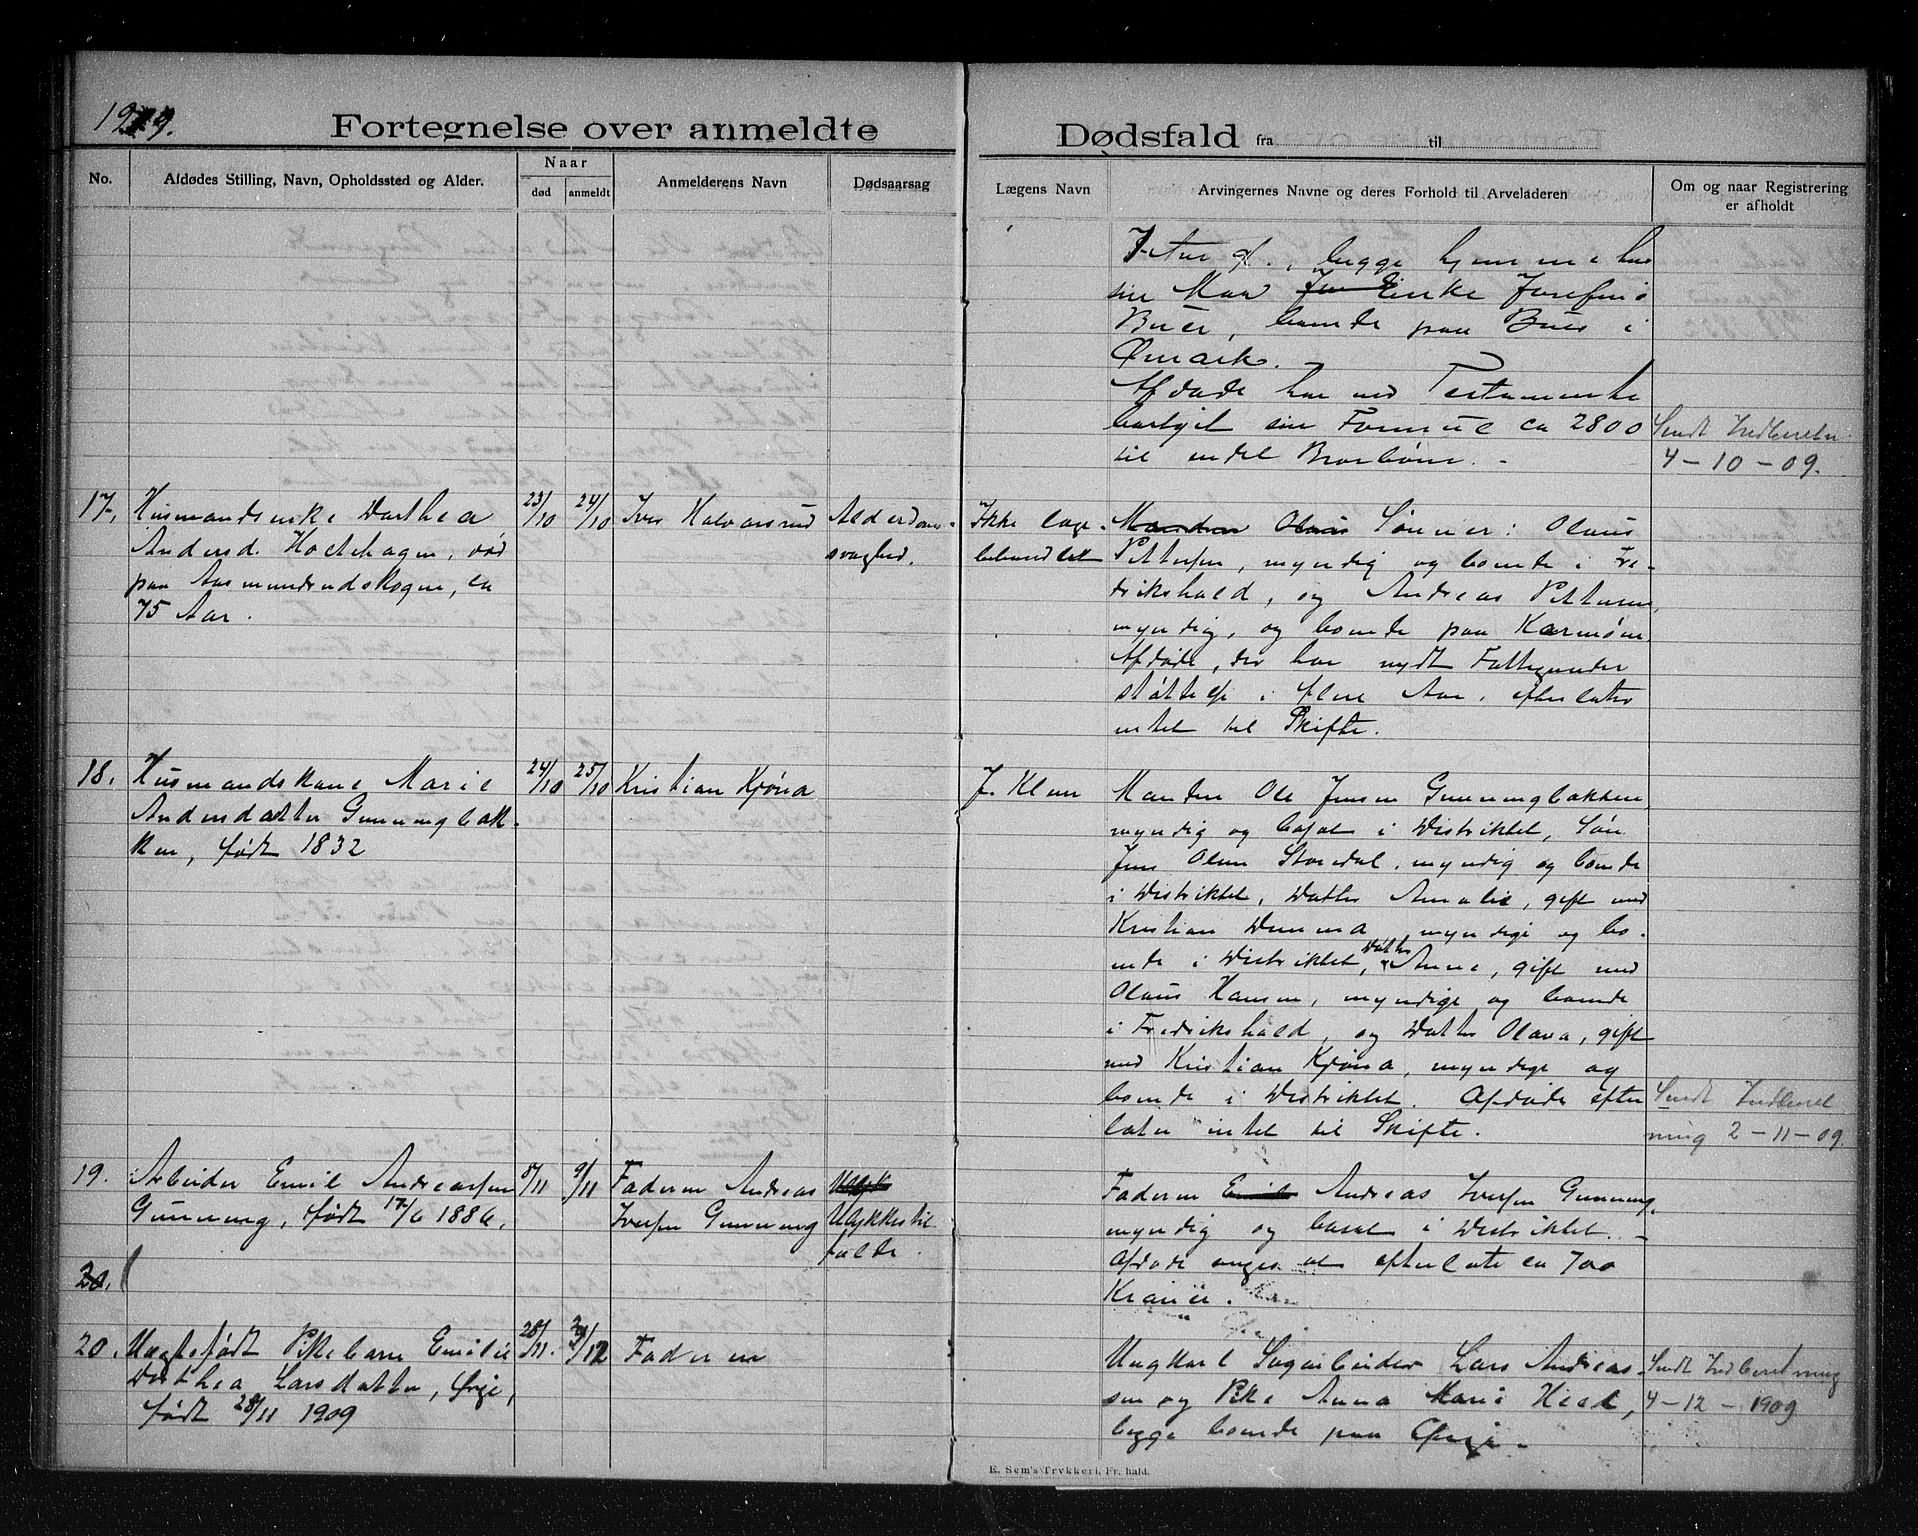 1909.
Fortegnelse over anmeldte Dødsfald fra til
No.
Afdødes Stilling, Navn, Opholdssted og Alder.
Naar
død
anmeldt
Anmelderens Navn
Dødsaarsag
Lægens Navn
Arvingernes Navne og deres Forhold til Arveladeren
Om og naar Registrering
er afholdt
begge hjemme hos
sin Moder Enke Josefine
Buer, boende paa Buer i
Ømark.
Afdøde har ved Testamente
bortgit sin Formue ca 2800
til endel Brorbørn. -
Sendt Indberetn.
4-10-09.
17.
Husmandsenke Dorthea
Andersd. Hoelhagen, død
paa Aasmundrudskogen, ca
75 Aar.
23/10
24/10
Iver Halvorsrud
Alderdoms-
svaghed.
Ikke læge-
behandlet
Manden Olaus Sønner: Olaus
Pettersen, myndig og boende i Fre-
drikshald, og Andreas Pettersen,
myndig, og boende paa Karmøen.
Afdøde, der har nydt Fattigunder
støttelse i flere Aar, efterlater
intet til Skifte.
18.
Husmandskone Marie
Andersdatter Gunnengbak-
ken, født 1832
24/10
25/10
Kristian Kjøna
J. Klem
Manden Ole Jensen Gunnengbakken,
myndig og bosat i Distriktet, Søn
Jens Olsen Stordal, myndig og boende
i Distriktet, Datter Amalie, gift med
Kristian Damma, myndige og bo-
ende i Distriktet, Datter Anne, gift med
Olaus Hansen, myndige og boende
i Fredrikshald, og Datter Olava, gift
med Kristian Kjøna, myndige og
boende i Distriktet. Afdøde efter
later intet til Skifte.
Sendt Indberet
ning 2-11-09.
19.
Arbeider Emil Andreassen
Gunneng, født 17/6 1886.
8/11
9/11
Faderen Andreas
Iversen Gunneng
Ulykkestil
fælde.
Faderen Emil Andreas Iversen Gunneng,
myndig og bosat i Distriktet. -
Afdøde anges at efterlate ca 700
Kroner.
20.
20.
Uægtefødt Pikebarn Emilie
Dorthea Larsdatter, Ørje,
født 28/11 1909
28/11.
/12
Faderen
Ungkarl Sagarbeider Lars Andreas
sen og Pike Anna Marie Heel,
begge boende paa Ørje. -
Sendt Indberetning
4-12-1909
E. Sem's Trykkeri, Fr. hald.